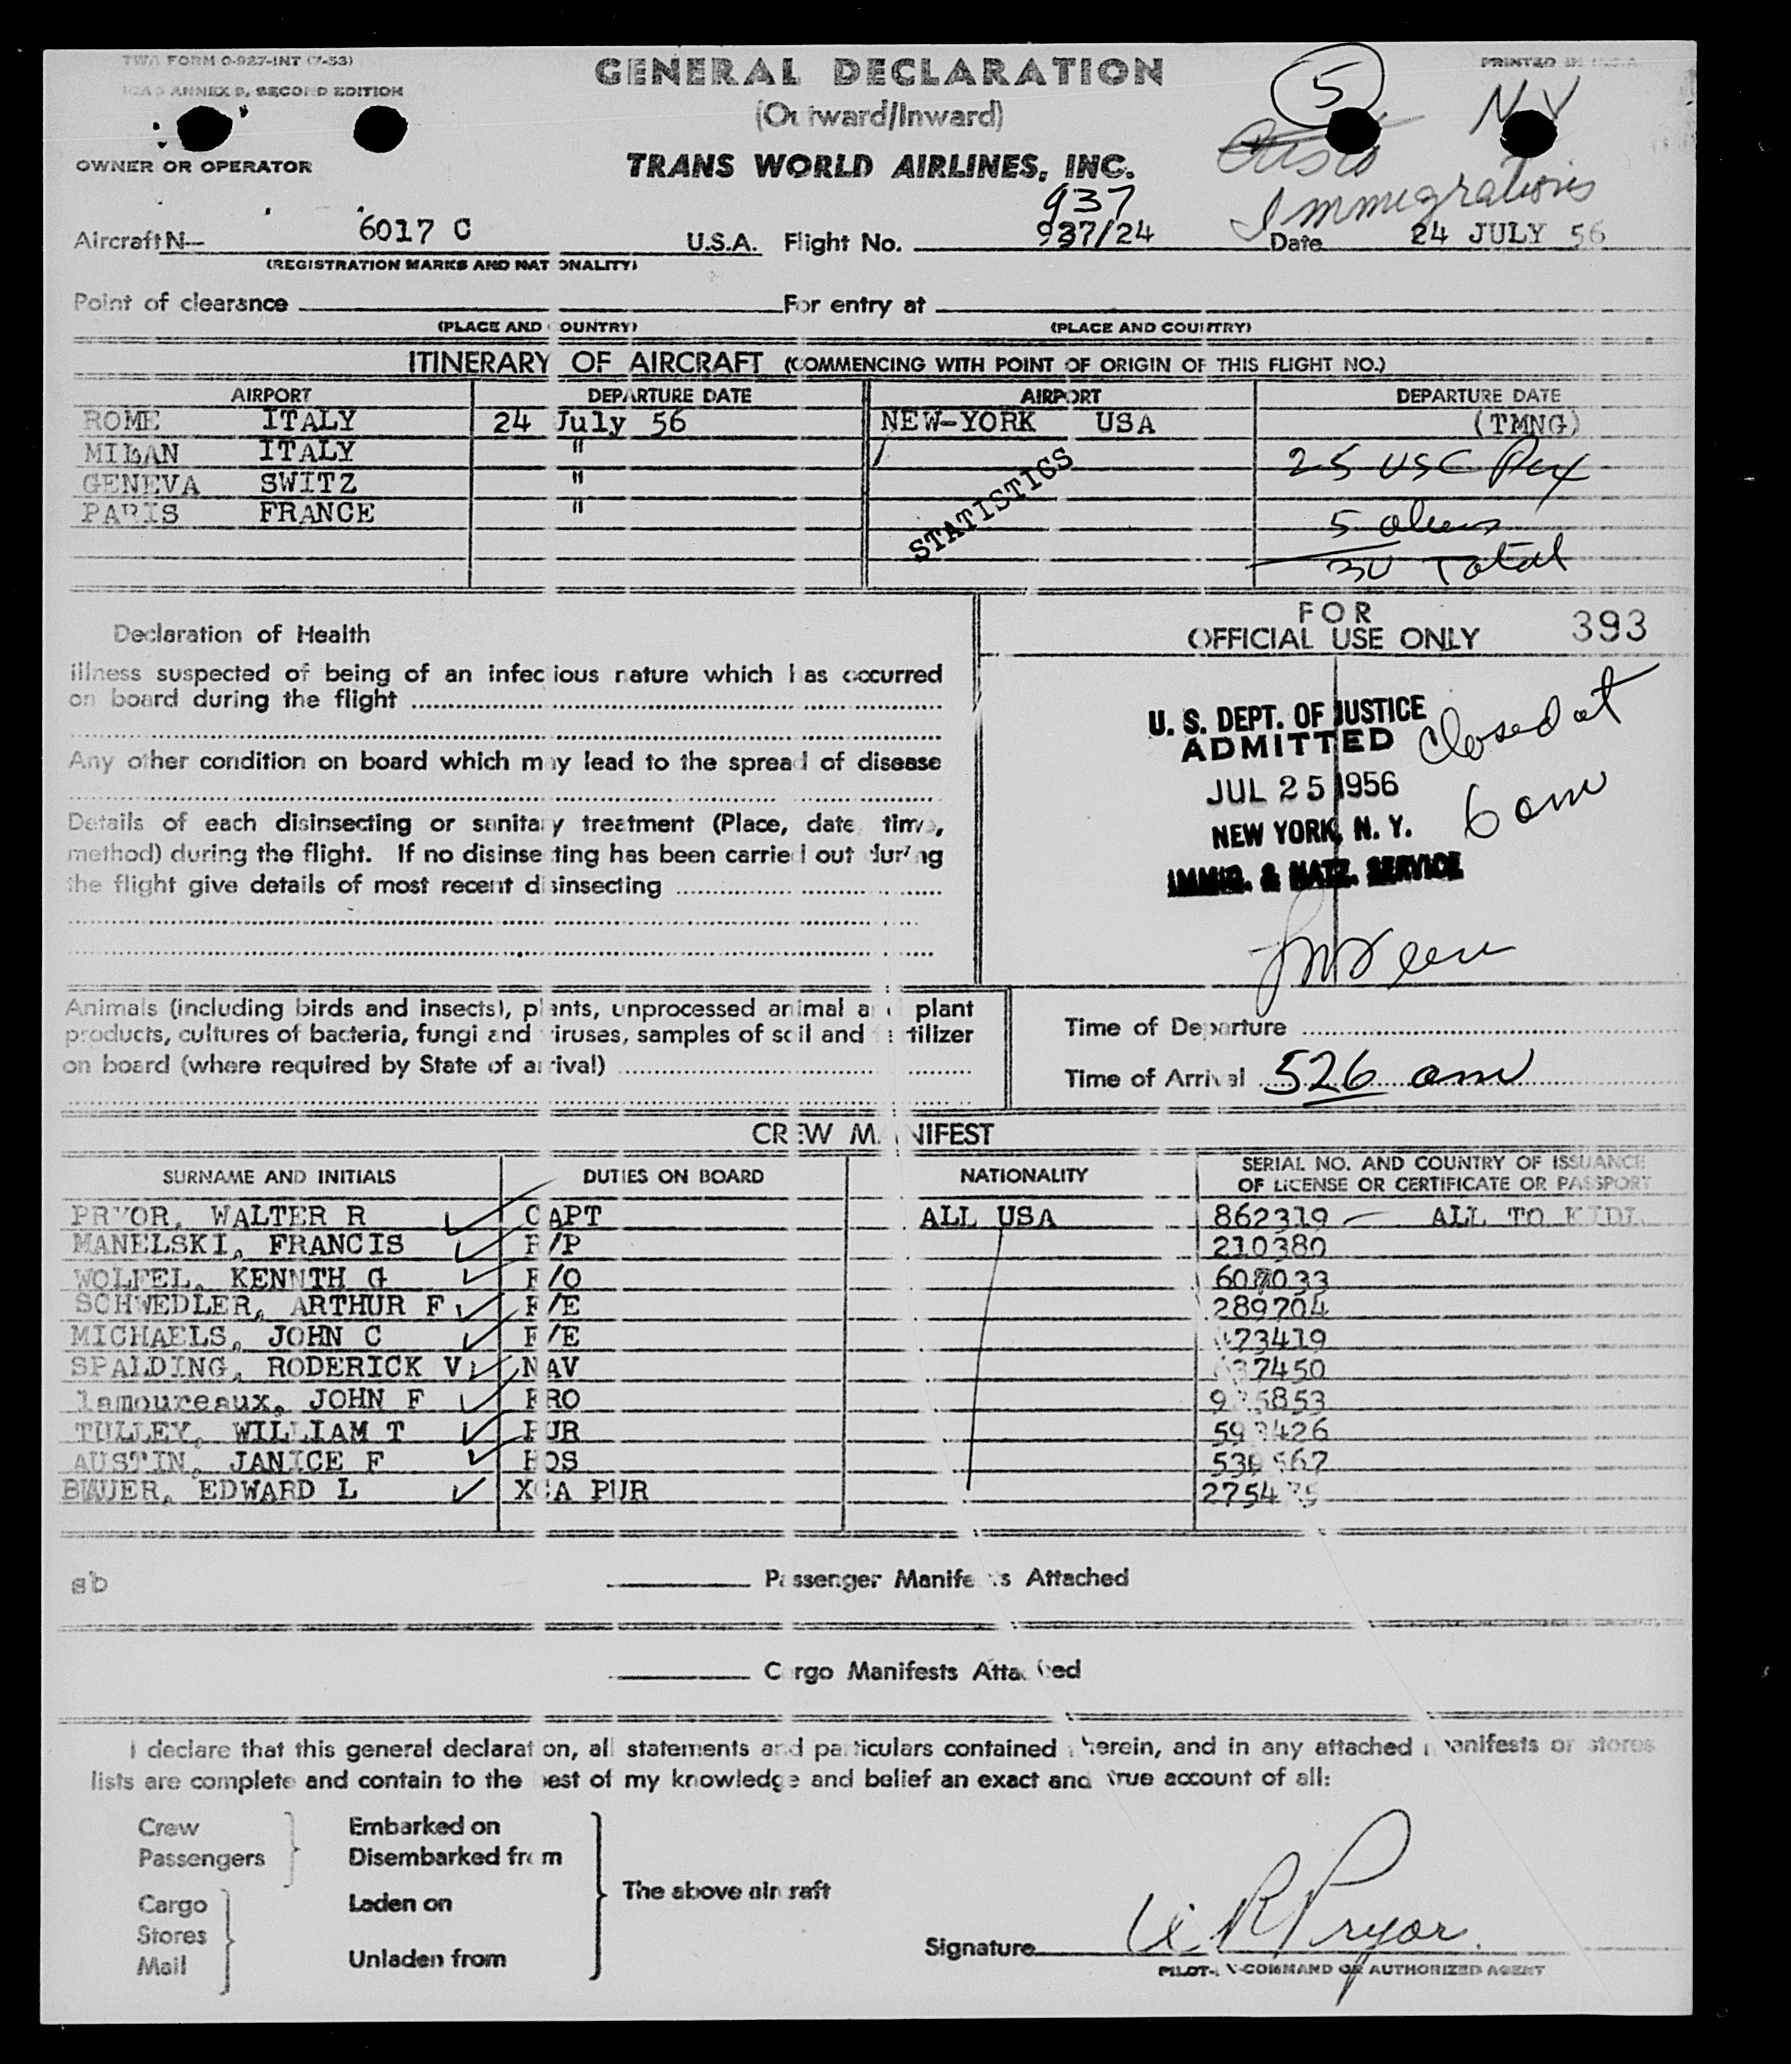 TWA FORM O-927-INT (7-53)
ICAO ANNEX 9, SECOND EDITION
GENERAL DECLARATION
(Outward/Inward)
5
PRINTED IN U.S.A.
N Y
OWNER OR OPERATOR
TRANS WORLD AIRLINES, INC.
Immigrations
937
Aircraft N— 6017 C U.S.A. Flight No. 937/24 Date 24 JULY 56
(REGISTRATION MARKS AND NATIONALITY)
Point of clearance For entry at
(PLACE AND COUNTRY) (PLACE AND COUNTRY)
ITINERARY OF AIRCRAFT (COMMENCING WITH POINT OF ORIGIN OF THIS FLIGHT NO.)
AIRPORT DEPARTURE DATE AIRPORT DEPARTURE DATE
ROME ITALY 24 July 56 NEW-YORK USA (TMNG)
MILAN ITALY " 25 USC Pax
GENEVA SWITZ "
PARIS FRANCE " 5 aliens
STATISTICS
30 Total
Declaration of Health
FOR
OFFICIAL USE ONLY 393
illness suspected of being of an infectious nature which has occurred
on board during the flight
Any other condition on board which may lead to the spread of disease
Details of each disinsecting or sanitary treatment (Place, date, time,
method) during the flight. If no disinsecting has been carried out during
the flight give details of most recent disinsecting
U. S. DEPT. OF JUSTICE
ADMITTED
Closed at
JUL 25 1956
6 am
NEW YORK, N. Y.
IMMIG. & NATZ. SERVICE
Animals (including birds and insects), plants, unprocessed animal and plant
products, cultures of bacteria, fungi and viruses, samples of soil and fertilizer
on board (where required by State of arrival)
Time of Departure
Time of Arrival 526 am
CREW MANIFEST
SURNAME AND INITIALS DUTIES ON BOARD NATIONALITY SERIAL NO. AND COUNTRY OF ISSUANCE
OF LICENSE OR CERTIFICATE OR PASSPORT
PRYOR, WALTER R CAPT ALL USA 862319 — ALL TO KIDL
MANELSKI, FRANCIS F/P 210380
WOLFEL, KENNTH G F/O
SCHWEDLER, ARTHUR F F/E 289704
MICHAELS, JOHN C F/E 473419
SPALDING, RODERICK V NAV
lamoureaux, JOHN F PRO
TULLEY, WILLIAM T PUR
AUSTIN, JANICE F HOS
BAUER, EDWARD L PUR
sb
Passenger Manifests Attached
Cargo Manifests Attached
I declare that this general declaration, all statements and particulars contained herein, and in any attached manifests or stores
lists are complete and contain to the best of my knowledge and belief an exact and true account of all:
Crew Embarked on
Passengers Disembarked from
The above aircraft
Cargo Laden on
Stores
Mail Unladen from
Signature W R Pryor
PILOT-IN-COMMAND OR AUTHORIZED AGENT